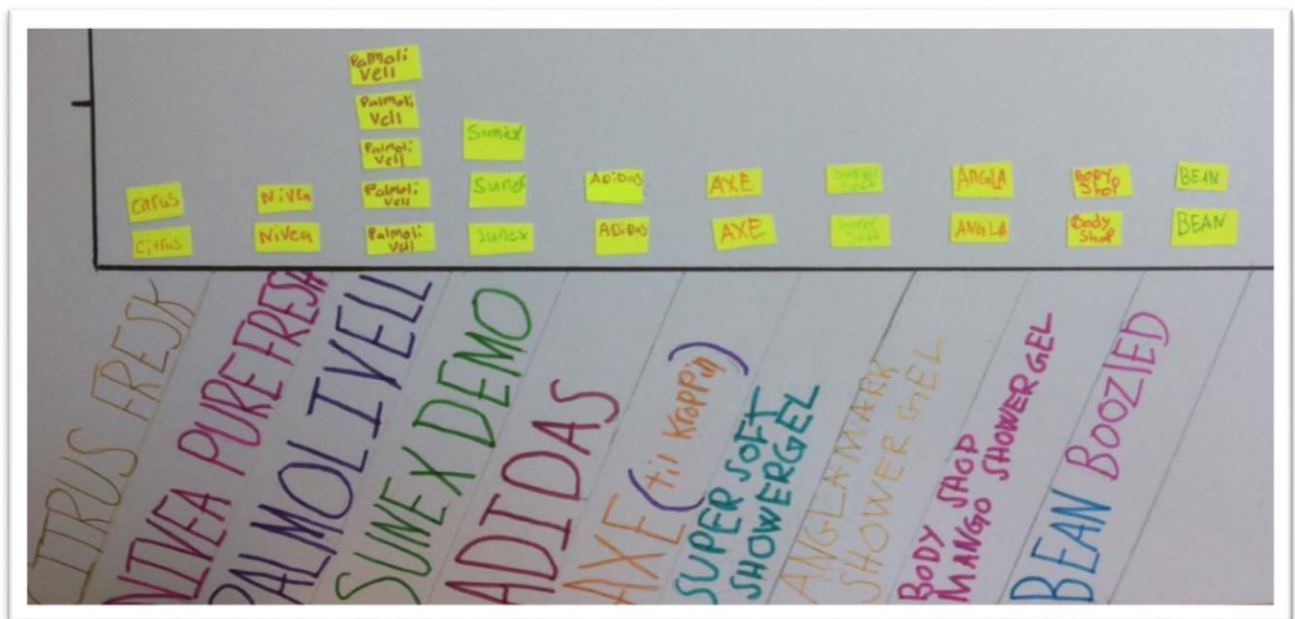 Palmoli
Vell
Palmoli
Vell
Palmoli
Vell
Palmoli
Vell
Palmoli
Vell
Sunex
Sunex
Sunex
Citrus
Citrus
Nivea
Nivea
ADiDAS
ADiDAS
AXE
AXE
Super
Soft
Super
Soft
ANGLA
ANGLA
Body
Shop
Body
Shop
BEAN
BEAN
CITRUS FRESK
NIVEA PURE FRESH
PALMOLIVELL
SUNEX DEMO
ADIDAS
AXE (til Kroppin)
SUPER SOFT
SHOWERGEL
ANGLAMARK
SHOWER GEL
BODY SHOP
MANGO SHOWERGEL
BEAN BOOZLED